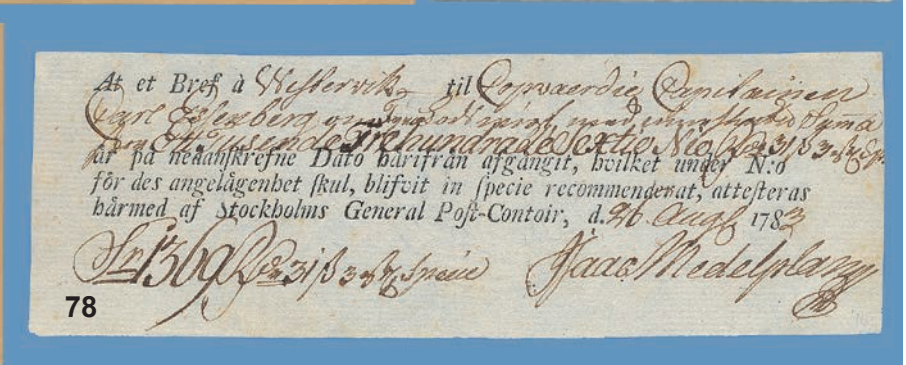 At et Bref à Westervik til Copvaerdie Capitainen
Carl Essenberg med Suma
Ett Tusende Trehundrade Sextio Nio 31 ß 3
är på nedanskrefne Dato härifrån afgångit, hvilket under N:o
för des angelägenhet skul, blifvit in specie recommenderat, attesteras
härmed af Stockholms General Post-Contoir, d. 26 Aug 1783
1369 31 ß 3 Specie Isaac Medelplan
78